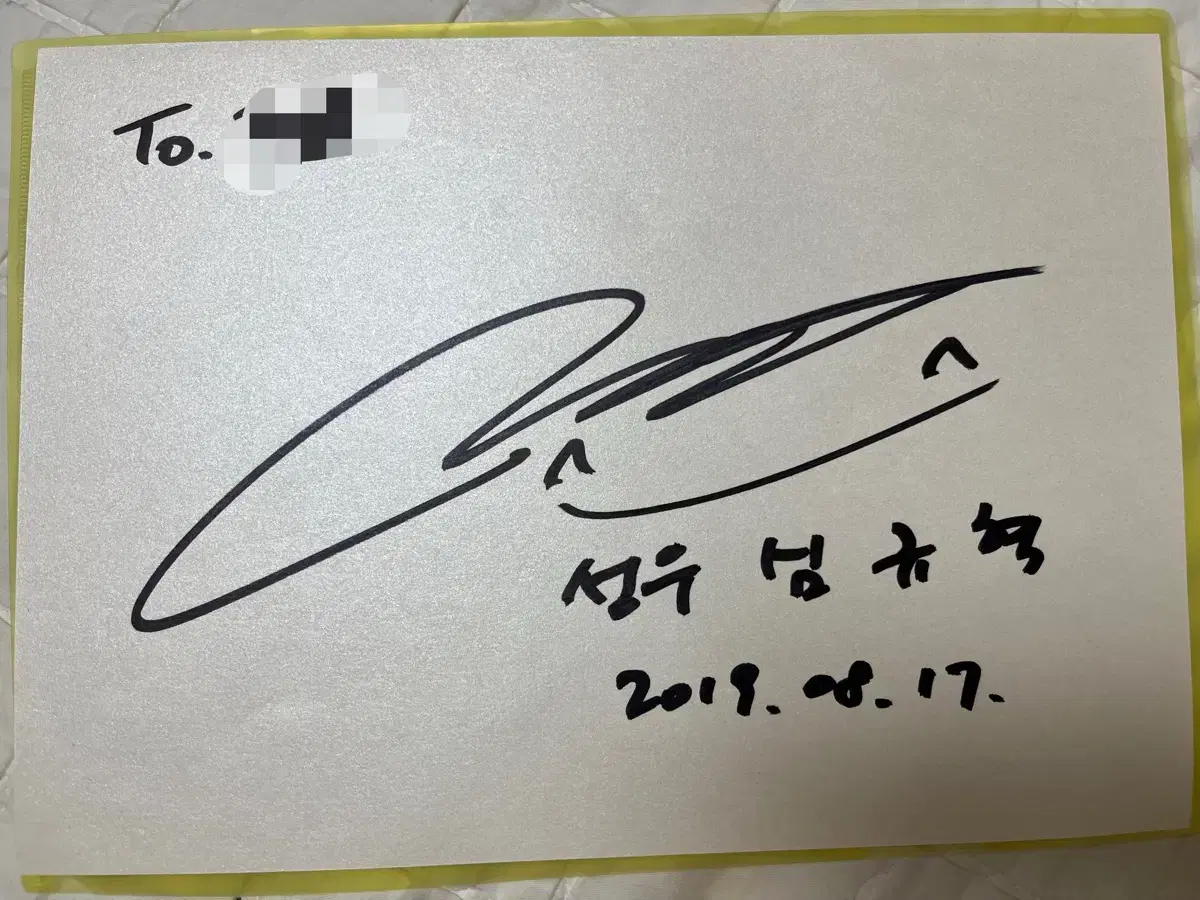 To.
성우 심규혁
2019. 08. 17.